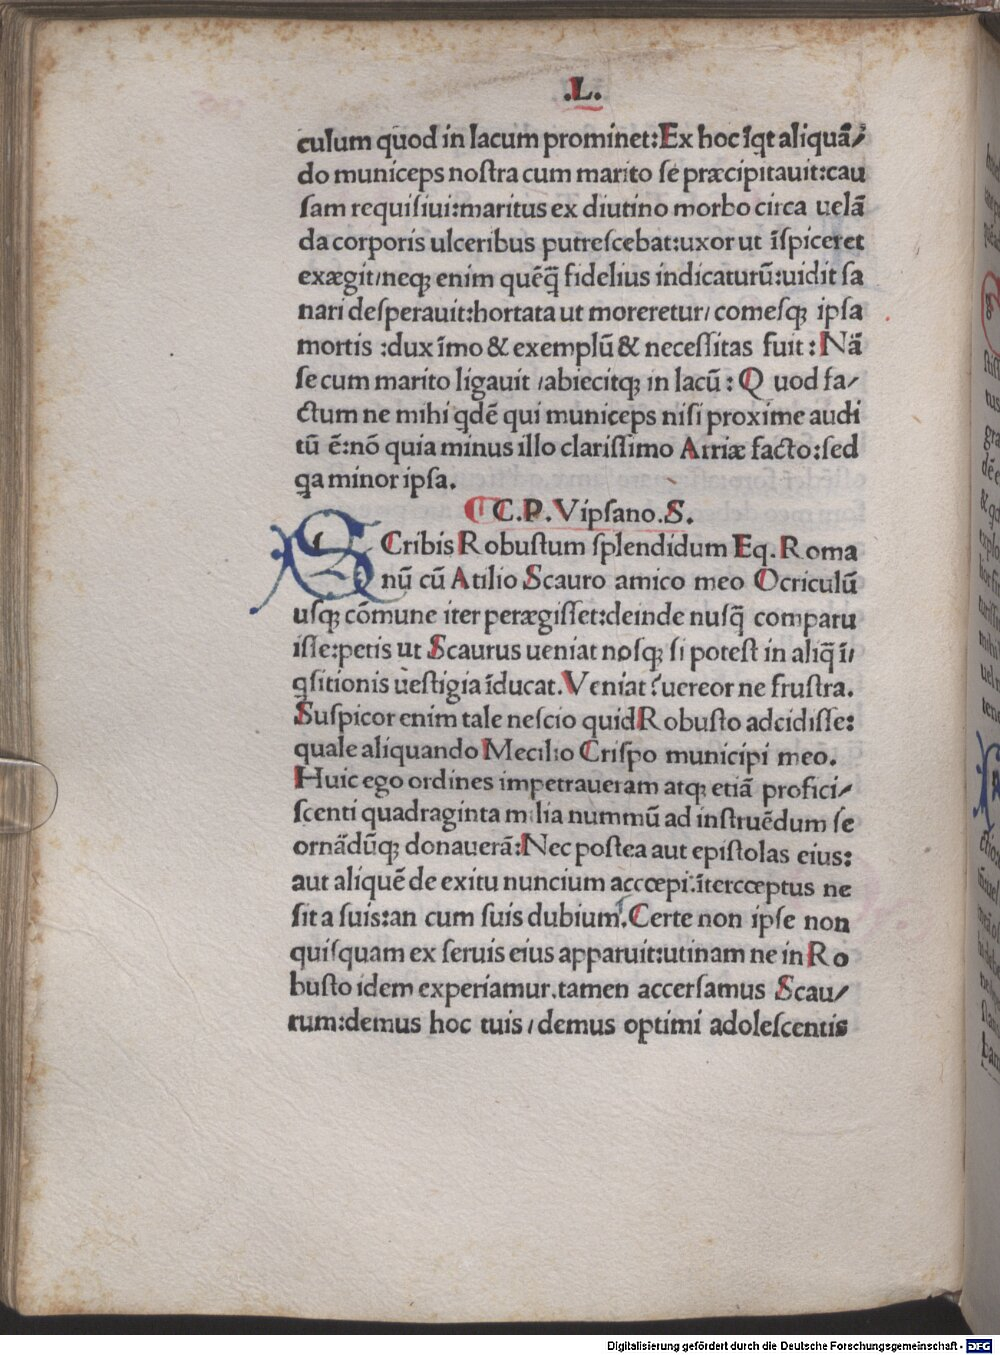 .L.
culum quod in lacum prominet:Ex hoc īqt aliquā/
do municeps noſtra cum marito ſe præcipitauit:cau
ſam requiſiui:maritus ex diutino morbo circa uelā
da corporis ulceribus putreſcebat:uxor ut īſpiceret
exægit/neqꝫ enim quēq̄ fidelius indicaturū:uidit ſa
nari deſperauit:hortata ut moreretur/comeſqꝫ ipſa
mortis :dux īmo & exemplū & neceſſitas fuit:Nā
ſe cum marito ligauit /abiecitqꝫ in lacū: Q uod fa/
ctum ne mihi qdē qui municeps niſi proxime audi
tū ē:nō quia minus illo clariſſimo Arriæ facto:ſed
qa minor ipſa.
C.P.Vipſano.S.
SCribis Robuſtum ſplendidum Eq.Roma
nū cū Atilio Scauro amico meo Ocriculū
uſqꝫ cōmune iter perægiſſet:deinde nuſq̄ comparu
iſſe:petis ut Scaurus ueniat noſqꝫ ſi poteſt in aliq̄ ī/
qſitionis ueſtigia īducat.Veniat ?uereor ne fruſtra.
Suſpicor enim tale neſcio quid Robuſto adcidiſſe:
quale aliquando Mecilio Criſpo municipi meo.
Huic ego ordines impetraueram atqꝫ etiā profici/
ſcenti quadraginta milia nummū ad inſtruēdum ſe
ornādūqꝫ donauerā:Nec poſtea aut epiſtolas eius:
aut aliquē de exitu nuncium accœpi:ītercœptus ne
ſit a ſuis:an cum ſuis dubium.Certe non ipſe non
quiſquam ex ſeruis eius apparuit:utinam ne in Ro
buſto idem experiamur.tamen accerſamus Scau/
rum:demus hoc tuis/demus optimi adoleſcentis
Digitalisierung gefördert durch die Deutsche Forschungsgemeinschaft - DFG